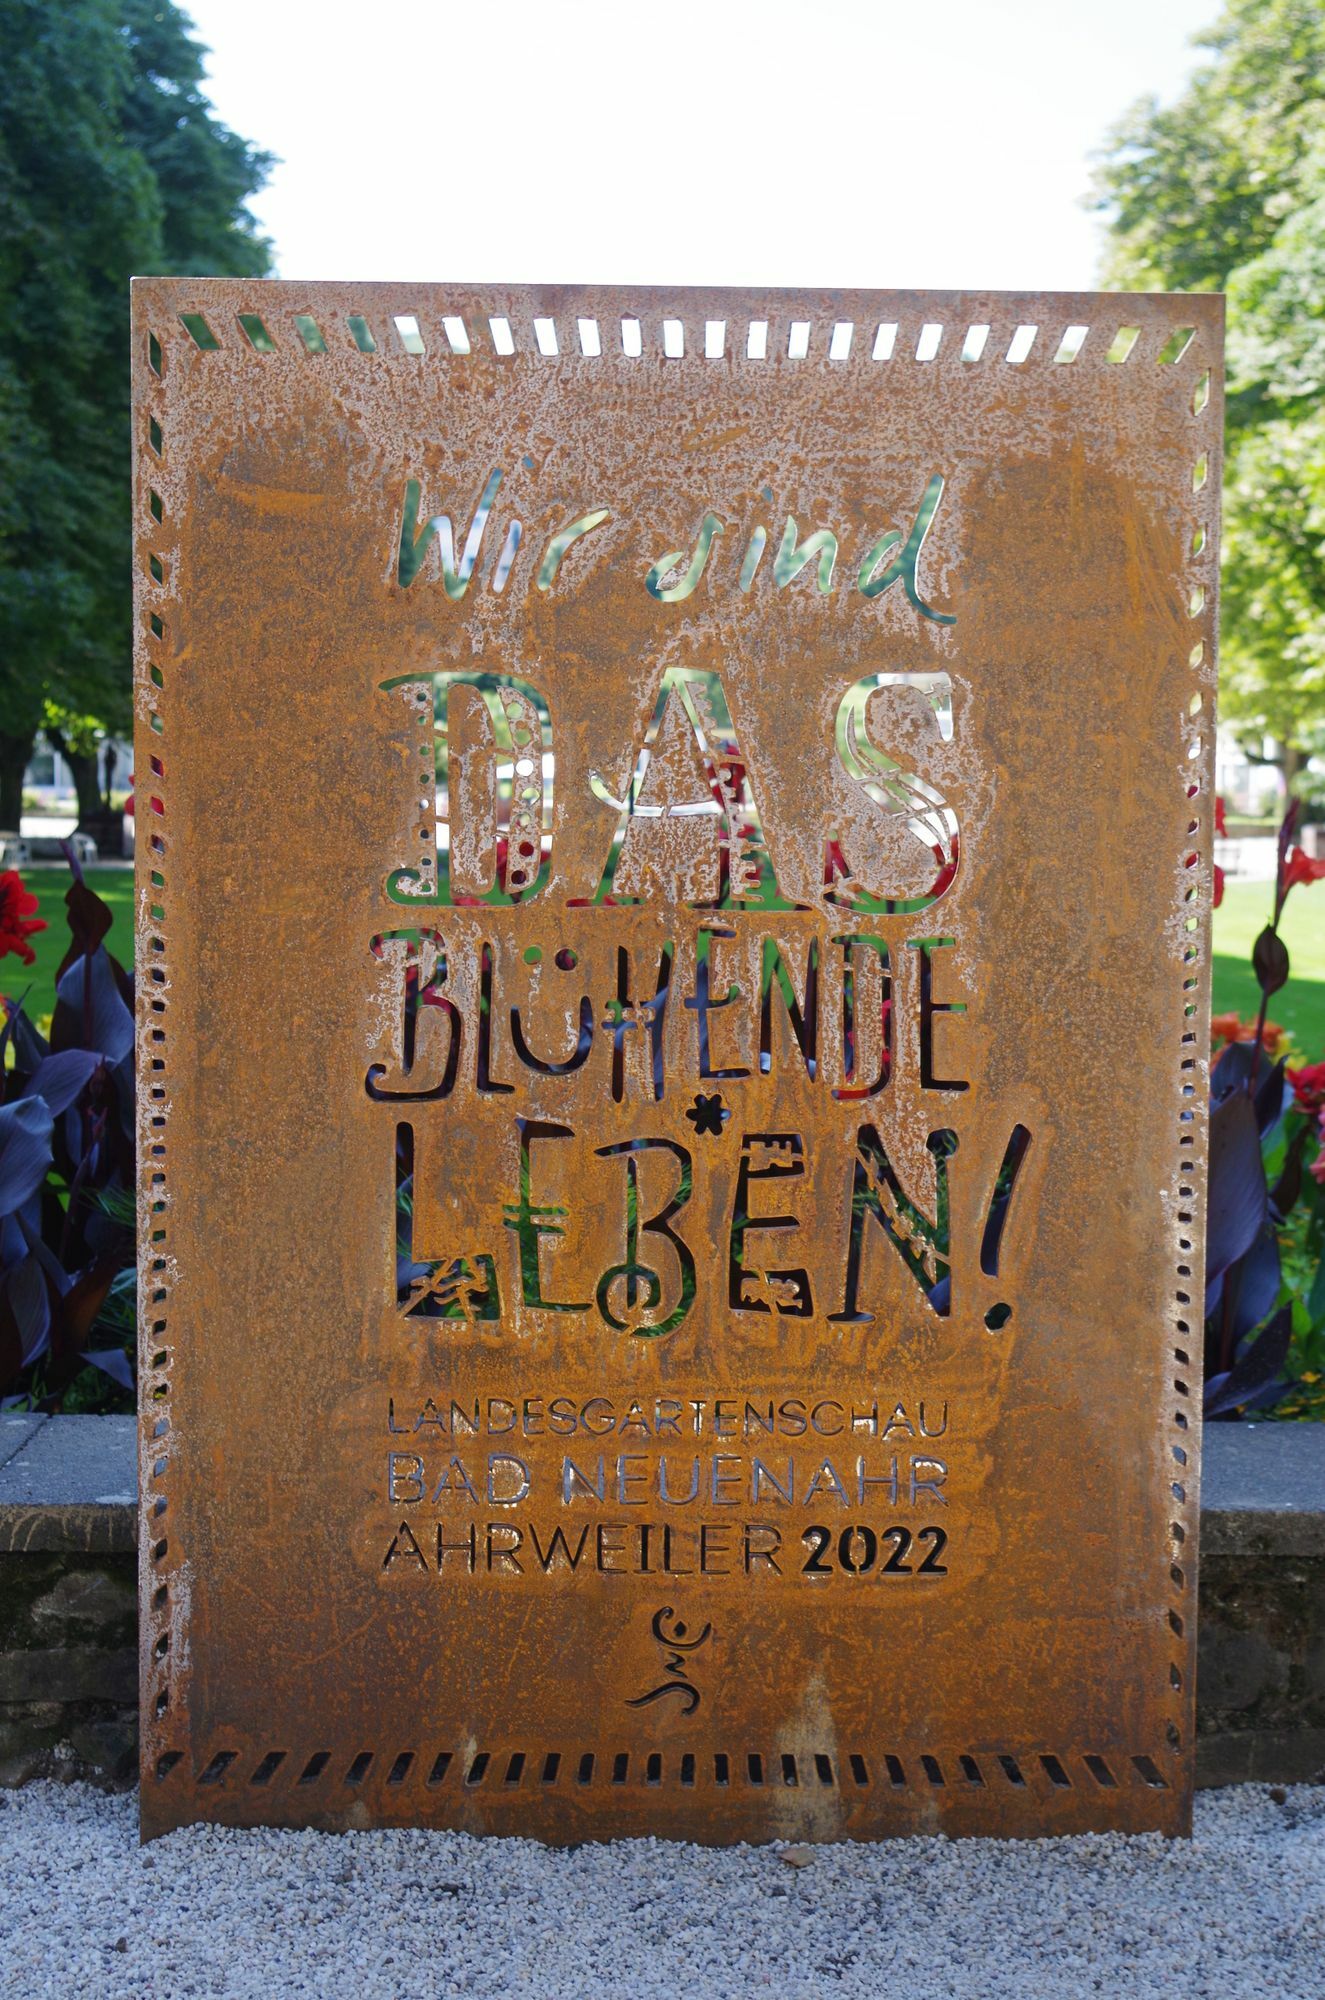 Wir sind
DAS
BLÜHENDE
LEBEN!
LANDESGARTENSCHAU
BAD NEUENAHR
AHRWEILER 2022